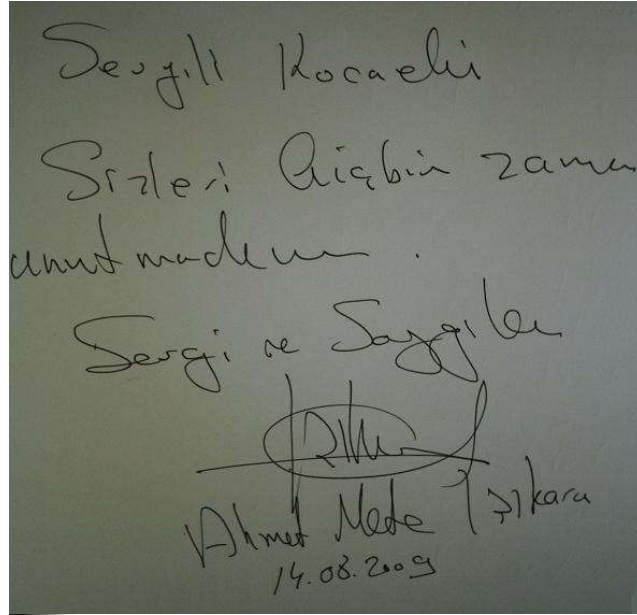 Sevgili Kocaeli
Sizleri hiçbir zaman
unutmadım.
Sevgi ve Saygılar
Ahmet Mete Işıkara
14.08.2009